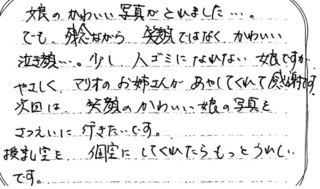 娘のかわいい写真がとれました…。
でも、残念ながら 笑顔ではなく かわいい
泣き顔…。少し 人ゴミになれない 娘ですが
やさしく マリオのお姉さんが あやしてくれて 感謝です。
次回は、笑顔のかわいい娘の写真を
さつえいに 行きたいです。
授乳室を 個室に してくれたら もっと うれしい
です。